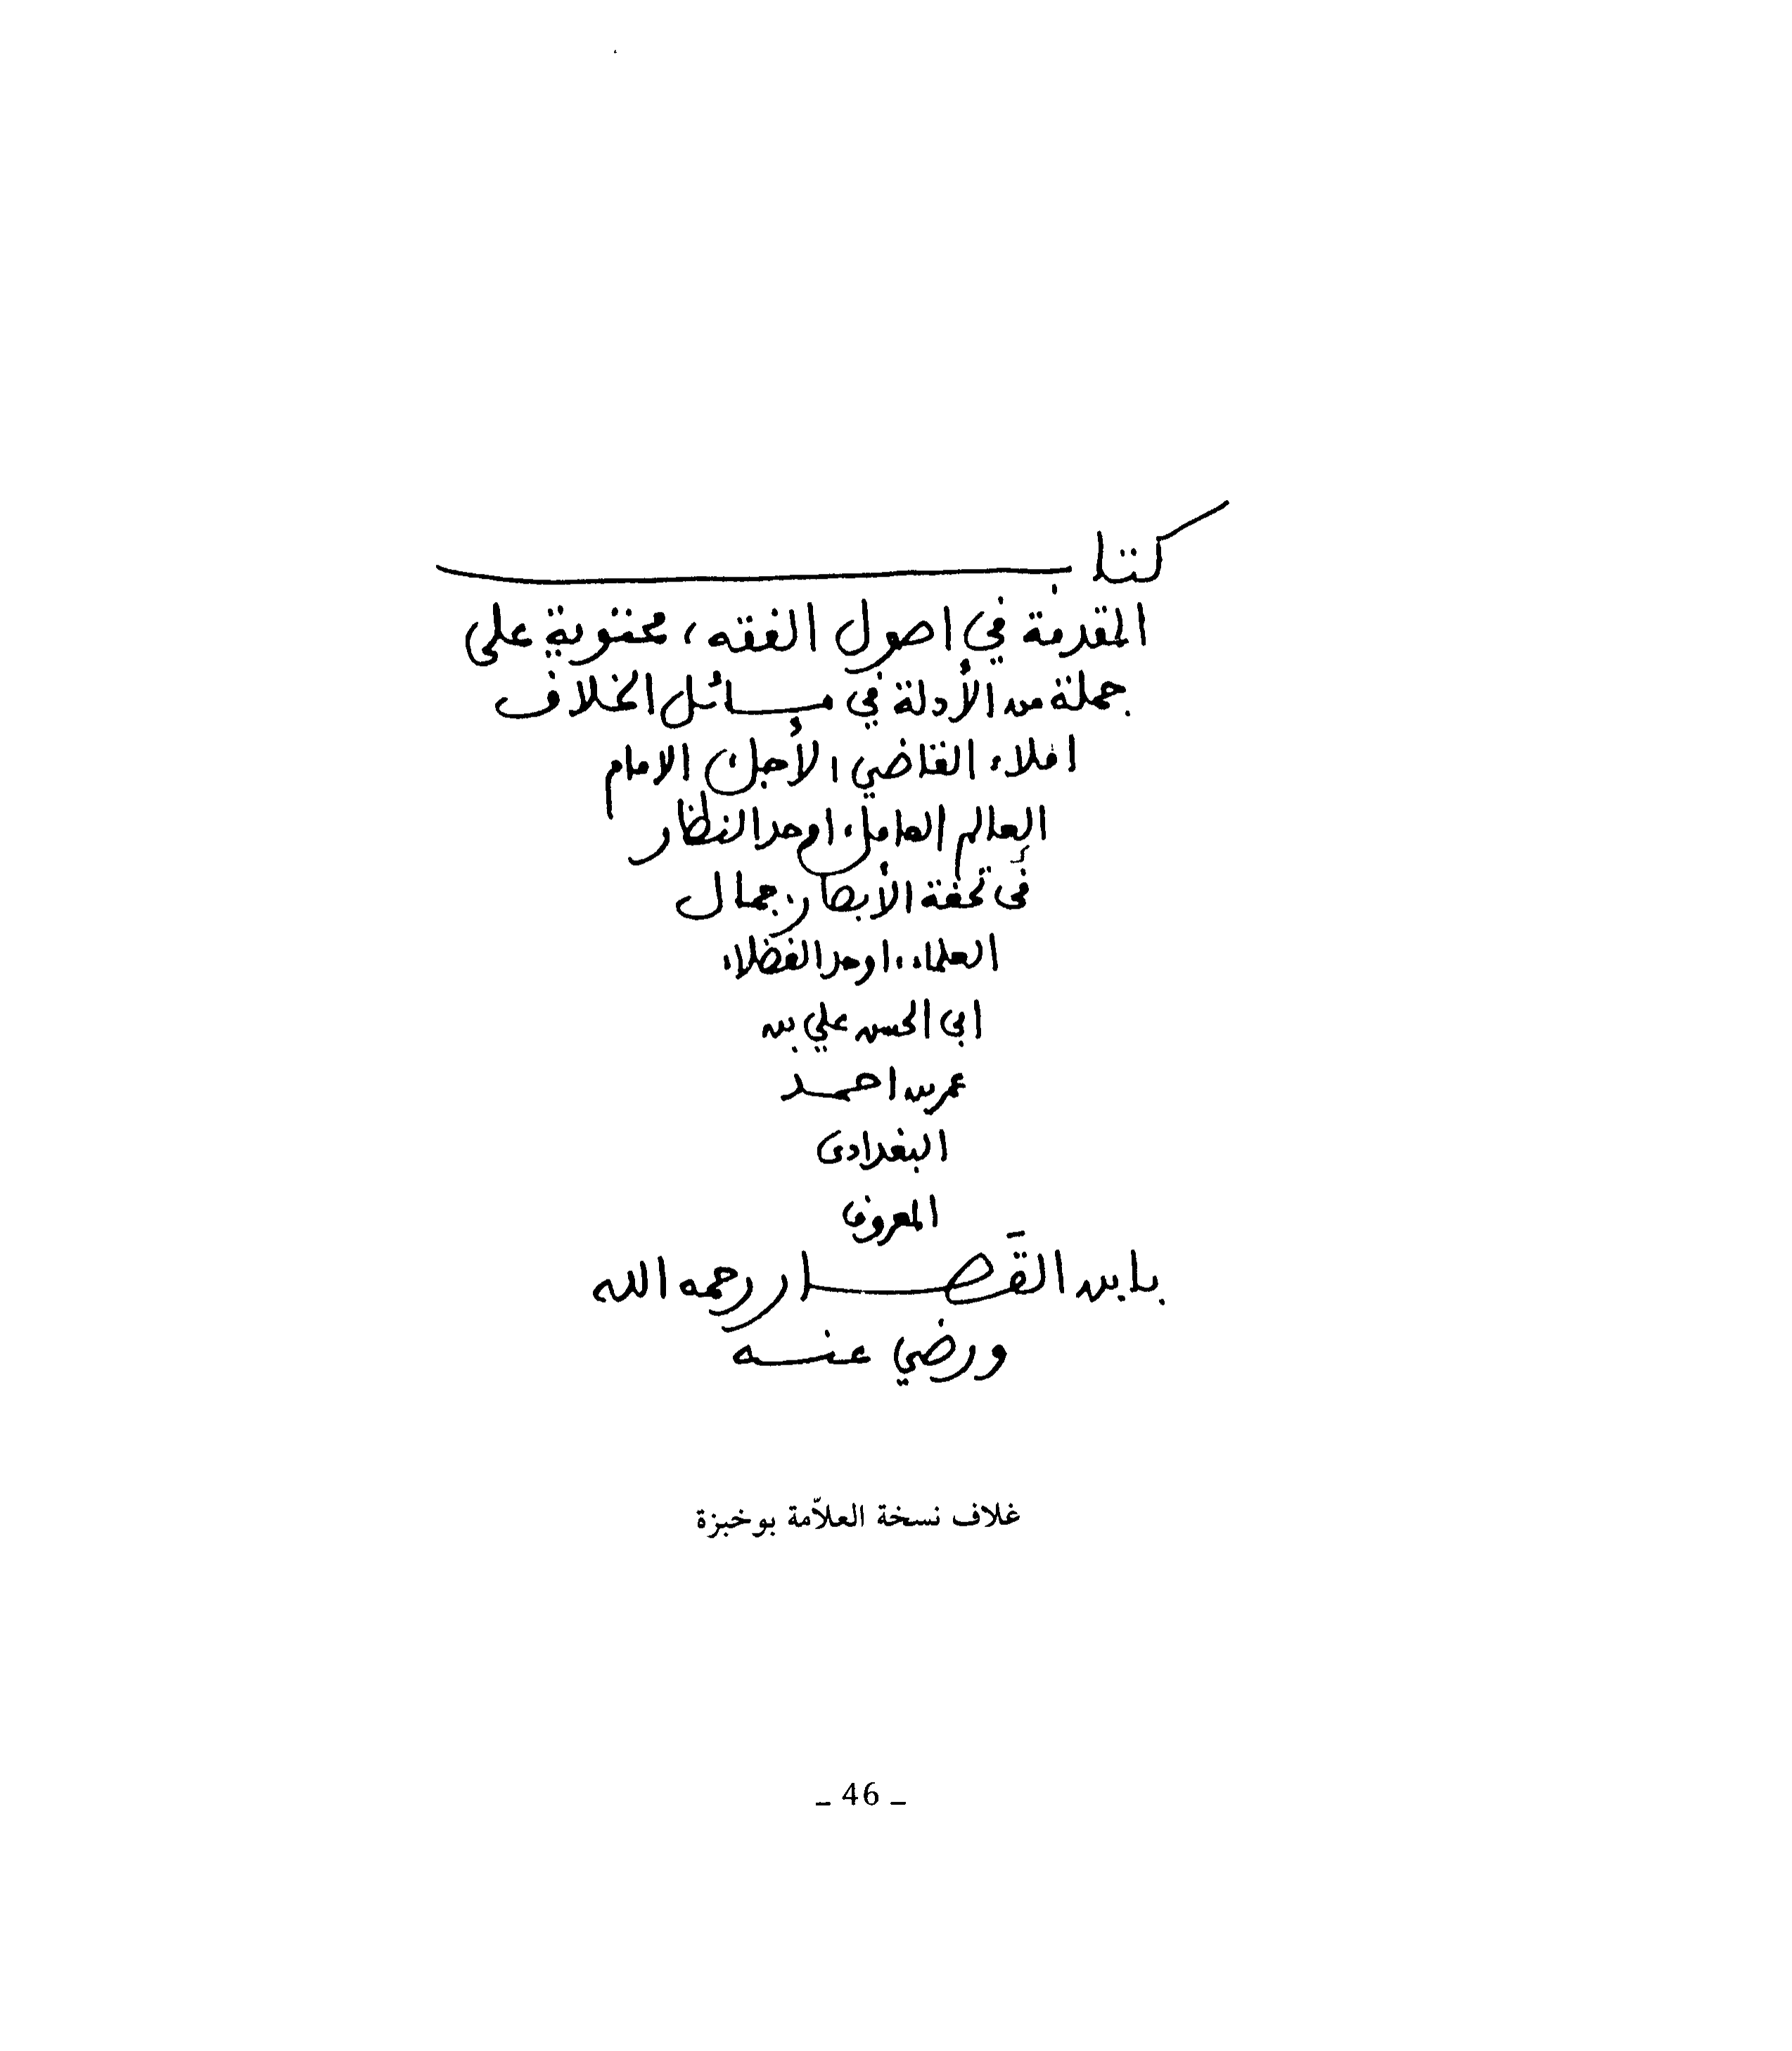 كتاب
المقدمة في اصول الفقه، محتوية على
جملة من الأدلة في مسائل الخلاف
املاء القاضي الأجل الامام
العالم العامل، اوحد النظار
في تحفة الأبصار، جمال
العلماء، اوحد الفضلاء
ابي الحسن علي بن
عمر بن احمد
البغدادى
المعروف
بابن القَصار رحمه الله
ورضي عنه
غلاف نسخة العلاّمة بوخبزة
ـ 46 ـ